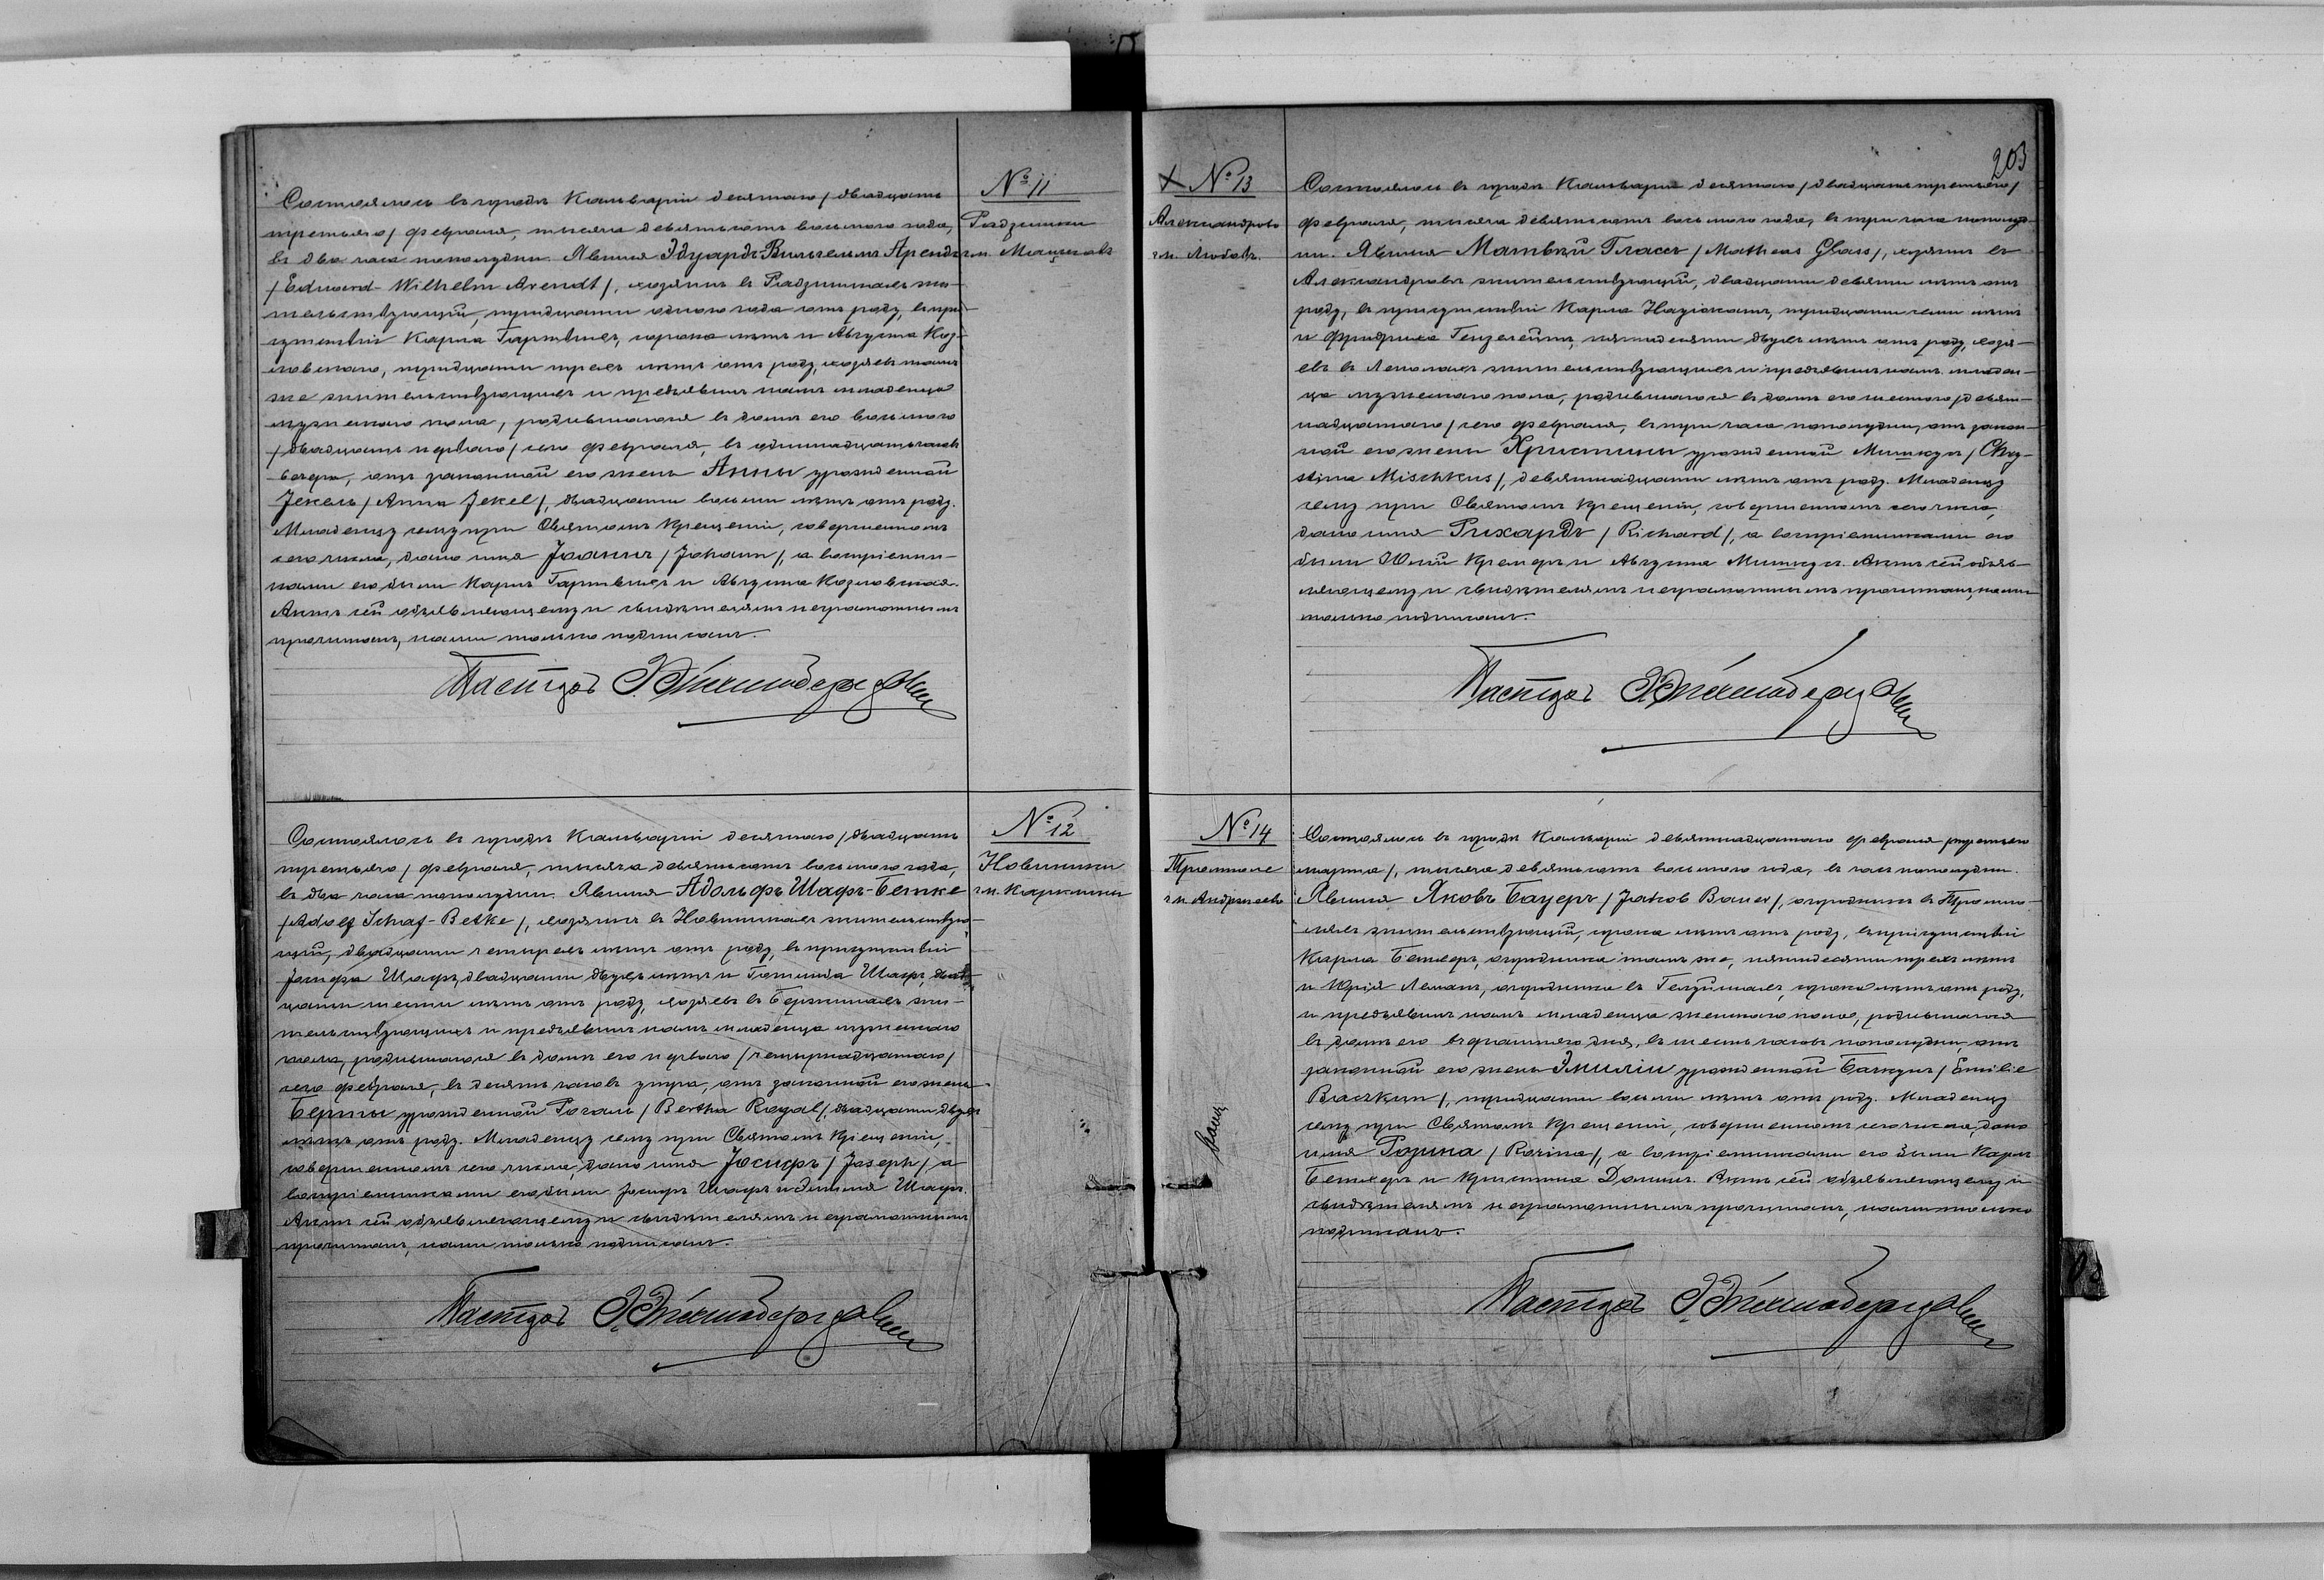 № 11
Радзишки
гм. Мацьковъ
Состоялось въ городѣ Кальваріи десятаго /двадцать
третьяго/ февраля, тысяча девятьсотъ восьмого года,
въ два часа пополудни. Явился Эдуардъ-Вильгельмъ Арендъ
/Eduard-Wilhelm Arendt/, хозяинъ въ Радзишкахъ жи-
тельствующій, тридцати одного года отъ роду, въ при-
сутствіи Карла, сорока лѣтъ и Августа Коз-
ловскаго, тридцати трехъ лѣтъ отъ роду, хозяевъ тамъ
же жительствующихъ и предъявилъ намъ младенца
мужескаго пола, родившагося въ домѣ его восьмого
/двадцать перваго/ сего февраля, въ одиннадцать часовъ
вечера, отъ законной его жены Анны урожденной
Јекель /Anna Jekel/, двадцати восьми лѣтъ отъ роду.
Младенцу сему при Святомъ Крещеніи, совершенномъ
сего числа, дано имя Јоаннъ /Johann/, а воспріемни-
ками его были Карлъ и Августа Козловская.
Актъ сей объявляющему и свидѣтелямъ неграмотнымъ
прочитанъ, нами только подписанъ.
Пасторъ
№ 12
Новинники
гм. Карклины
Состоялось въ городѣ Кальваріи десятаго /двадцать
третьяго/ февраля, тысяча девятьсотъ восьмого года,
въ два часа пополудни. Явился Адольфъ Шафъ-Бетке
/Adolf Schaf-Betke/, хозяинъ въ Новинникахъ жительствую-
щій, двадцати четырехъ лѣтъ отъ роду, въ присутствіи
Јосифа Шафъ, двадцати двухъ лѣтъ и Готлиба Шафъ, двад-
цати шести лѣтъ отъ роду, хозяевъ въ жи-
тельствующихъ и предъявилъ намъ младенца мужескаго
пола, родившагося въ домѣ его перваго /четырнадцатаго/
сего февраля, въ десять часовъ утра, отъ законной его жены
Берты урожденной Рогаль /Bertha Rogal/, двадцати двухъ
лѣтъ отъ роду. Младенцу сему при Святомъ Крещеніи,
совершенномъ сего числа, дано имя Јосифъ /Joseph/ а
воспріемниками его были Јосифъ Шафъ и Эмилія Шафъ.
Актъ сей объявляющему и свидѣтелямъ неграмотнымъ
прочитанъ, нами только подписанъ.
Пасторъ
203
№ 13
Александрово
гм. Любовъ.
Состоялось въ городѣ Кальваріи десятаго /двадцать третьяго/
февраля, тысяча девятьсотъ восьмого года, въ три часа пополуд-
ни. Явился Матвѣй Гласъ /Matheas Glass/, хозяинъ въ
Александровѣ жительствующій, двадцати девяти лѣтъ отъ
роду, въ присутствіи Карла, тридцати семи лѣтъ
и Фридриха, пятидесяти двухъ лѣтъ отъ роду, хозя-
евъ въ жительствующихъ и предъявилъ намъ младен-
ца мужескаго пола, родившагося въ домѣ его шестого /девят-
надцатаго/ сего февраля, въ три часа пополудни, отъ закон-
ной его жены Христины урожденной Мишкусъ /Chry-
stina Mischkus/, девятнадцати лѣтъ отъ роду. Младенцу
сему при Святомъ Крещеніи, совершенномъ сего числа,
дано имя Рихардъ /Richard/, а воспріемниками его
были Юлій Кремеръ и Августа Мишкусъ. Актъ сей объяв-
ляющему и свидѣтелямъ неграмотнымъ прочитанъ, нами
только подписанъ.
Пасторъ
№ 14
гм. Андржеевъ
Состоялось въ городѣ Кальваріи девятнадцатаго февраля /третьяго
марта/, тысяча девятьсотъ восьмого года, въ часъ пополудни.
Явился Яковъ Бауеръ /Jakob Bauer/, огородникъ въ
жительствующій, сорока лѣтъ отъ роду, въ присутствіи
Карла Беткеръ, огородника тамъ же, пятидесяти трехъ лѣтъ
и Юрія Леманъ, огородника въ, сорока лѣтъ отъ роду,
и предъявилъ намъ младенца женскаго пола, родившагося
въ домѣ его вчерашняго дня, въ шесть часовъ пополудни, отъ
законной его жены Эмиліи урожденной Бачкунъ /Emilie
Baczkun/, тридцати восьми лѣтъ отъ роду. Младенцу
сему при Святомъ Крещеніи, совершенномъ сего числа, дано
имя Розина /Rosina/, а воспріемниками его были Карлъ
Беткеръ и Кристина. Актъ сей объявляющему и
свидѣтелямъ неграмотнымъ прочитанъ, нами только
подписанъ.
Пасторъ